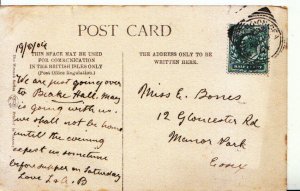 POST CARD
19/8/04
THIS SPACE MAY BE USED FOR
COMMUNICATION
IN THE BRITISH ISLES ONLY
(Post Office Regulation.)
THE ADDRESS ONLY TO BE
WRITTEN HERE.
We are just going over
to Blake Hall. May
is going with us.
we shall not be home
until the evening
expect us sometime
before supper on Saturday
Love
Miss E. Bones
12 Gloucester Rd
Manor Park
Essex